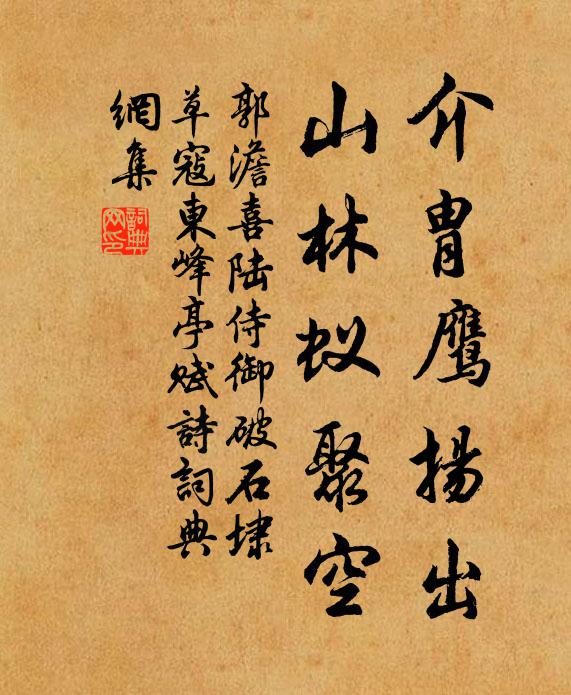 介胄鹰揚出
山林蚁聚空
郭澹喜陆侍御破石埭
草寇東峰亭赋詩詞典
網集
詞典網印